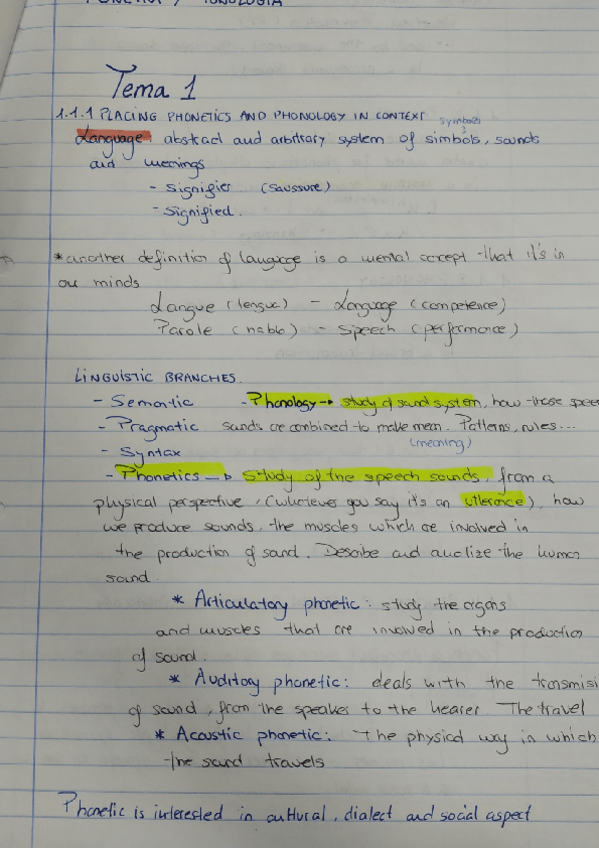 FONÉTICA / FONOLOGÍA
Tema 1
1.1.1 PLACING PHONETICS AND PHONOLOGY IN CONTEXT
symbols
Language: abstract and arbitrary system of simbols, sounds
and meanings
- Signifier (Saussure)
- Signified.
* another definition of language is a mental concept that it's in
our minds
Langue (lengua) - Language (competence)
Parole (habla) - Speech (performance)
LINGUISTIC BRANCHES.
- Semantic - Phonology → study of sound system, how those speec
- Pragmatic sounds are combined to make mean. Patterns, rules...
- Syntax (meaning)
- Phonetics → Study of the speech sounds, from a
physical perspective, (whatever you say it's an utterance), how
we produce sounds, the muscles which are involved in
the production of sound. Describe and analize the human
sound.
* Articulatory phonetic: study the organs
and muscles that are involved in the production
of sound.
* Auditory phonetic: deals with the transmisi
of sound, from the speaker to the hearer. The travel
* Acoustic phonetic: The physical way in which
the sound travels
Phonetic is interested in cultural, dialect and social aspect